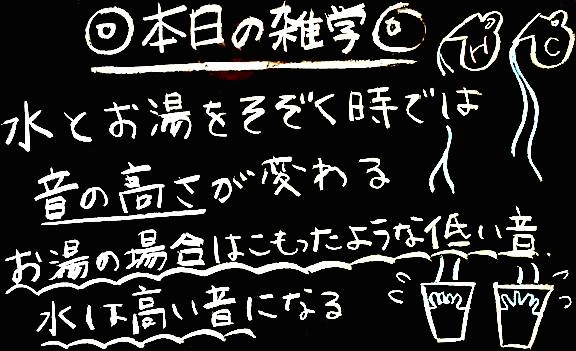 ◎本日の雑学◎
水とお湯をそそぐ時では
音の高さが変わる
お湯の場合はこもったような低い音.
水は高い音になる
H
C